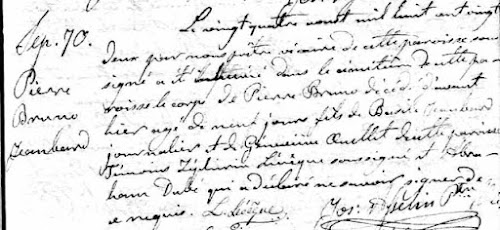 Sep. 70.
Pierre
Bruno
Jeanbard
Le vingt quatre aout mil huit cent vingt
deux par nous prêtre vicaire de cette paroisse sous
signé a été inhumé dans le cimetière de cette pa
roisse le corps de Pierre Bruno décédé d'avant
hier agé de neuf jours fils de Basile Jeanbard
journalier et de Genevieve Ouellet de cette paroisse
Témoins Zéphirin Lévêque soussigné et Abra
ham Dubé qui a déclaré ne savoir signer de
ce requis. L. Lévêque. Jos: Asselin Ptre